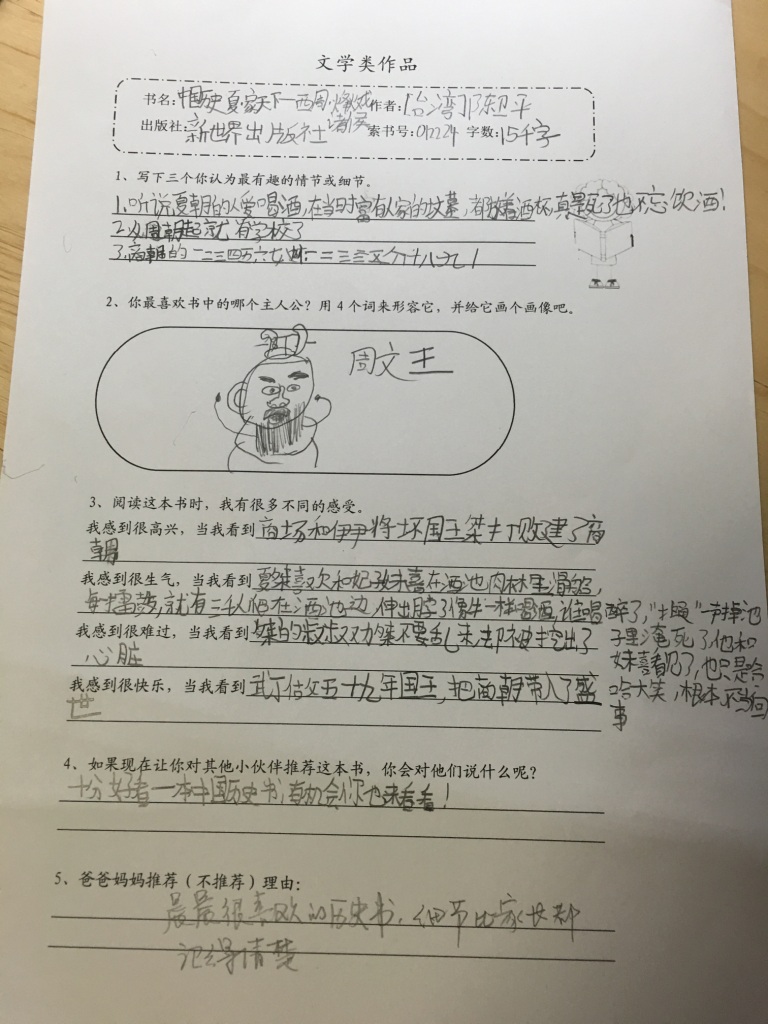 文学类作品
书名:中国历史夏·家天下—西周·烽火戏诸侯 作者:[台湾]陈卫平
出版社:新世界出版社 索书号:01224 字数:15千字
1、写下三个你认为最有趣的情节或细节。
1.听说夏朝的人爱喝酒,在当时富有人家的坟墓,都放着酒杯,真是死了也不忘饮酒!
2.从周朝起就有学校了
3.商朝的一二三四五六七
2、你最喜欢书中的哪个主人公?用4个词来形容它,并给它画个画像吧。
周文王
3、阅读这本书时,我有很多不同的感受。
我感到很高兴,当我看到商汤和伊尹将坏国王桀打败建了商
朝
我感到很生气,当我看到夏桀喜欢和妃子妹喜在酒池肉林里
每擂鼓,就有三千人爬在酒池边,伸出脖子像牛一样喝酒,谁喝醉了,"扑通"一声掉池
子里淹死了,他和
妹喜看见了,也只是哈
哈大笑,根本不当回
事
我感到很难过,当我看到桀的叔叔劝桀不要乱来,却被挖出了
心脏
我感到很快乐,当我看到武丁估父五十九年国王,把商朝带入了盛
世
4、如果现在让你对其他小伙伴推荐这本书,你会对他们说什么呢?
十分好看一本中国历史书,有机会你也来看看!
5、爸爸妈妈推荐(不推荐)理由:
晨晨很喜欢的历史书,细节比家长都
记得清楚